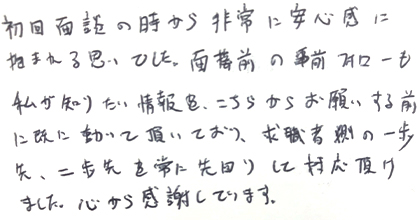 初回面談の時から非常に安心感に
包まれる思いでした。面接前の事前フォローも
私が知りたい情報を、こちらからお願いする前
に既に動いて頂いており、求職者側の一歩
先、二歩先を常に先回りして対応頂け
ました。心から感謝しています。